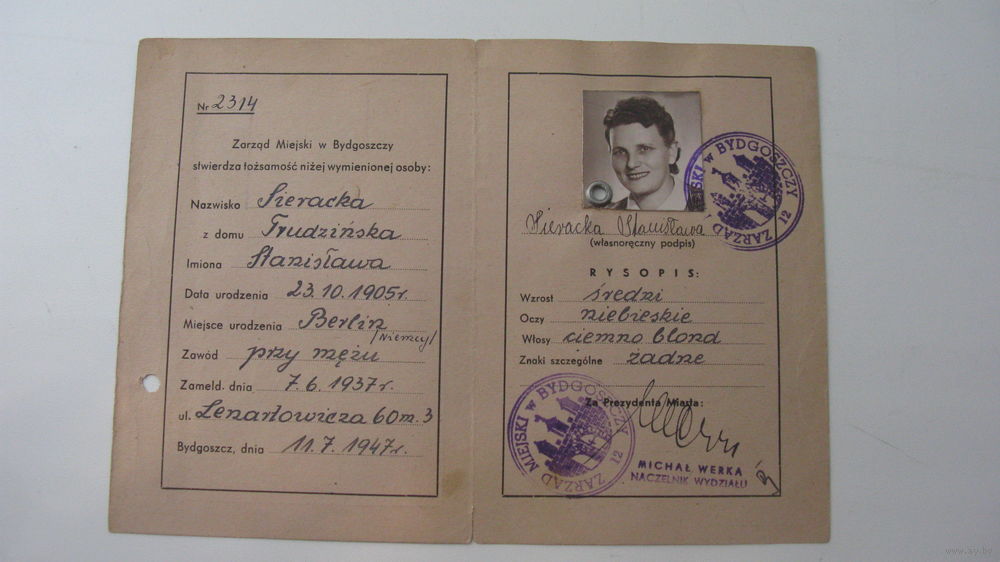 Nr 2314
Zarząd Miejski w Bydgoszczy
stwierdza tożsamość niżej wymienionej osoby:
Nazwisko Sieracka
z domu Trudzińska
Imiona Stanisława
Data urodzenia 23.10.1905r.
Miejsce urodzenia Berlin
/Niemcy/
Zawód przy mężu
Zameld. dnia 7.6.1937r.
ul. Lenartowicza 60 m. 3
Bydgoszcz, dnia 11.7.1947r.
ZARZĄD MIEJSKI w BYDGOSZCZY 12
Sieracka Stanisława
(własnoręczny podpis)
RYSOPIS:
Wzrost średni
Oczy niebieskie
Włosy ciemno blond
Znaki szczególne żadne
Za Prezydenta Miasta:
ZARZĄD MIEJSKI w BYDGOSZCZY 12
MICHAŁ WERKA
NACZELNIK WYDZIAŁU
www.ay.by